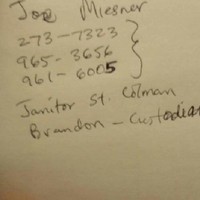 Joe Miesner
273-7323
965-3656
961-6005
Janitor St. Colman
Brandon - Custodian